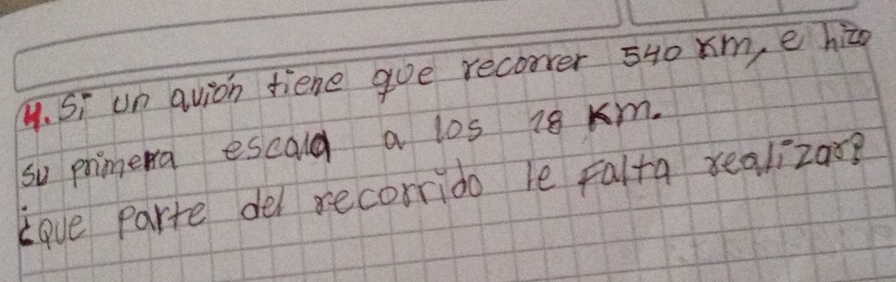 4. Si un avión tiene que recorrer 540 Km, e hizo
su primera escala a los 18 Km.
¿Que parte del recorrido le Falta realizar?